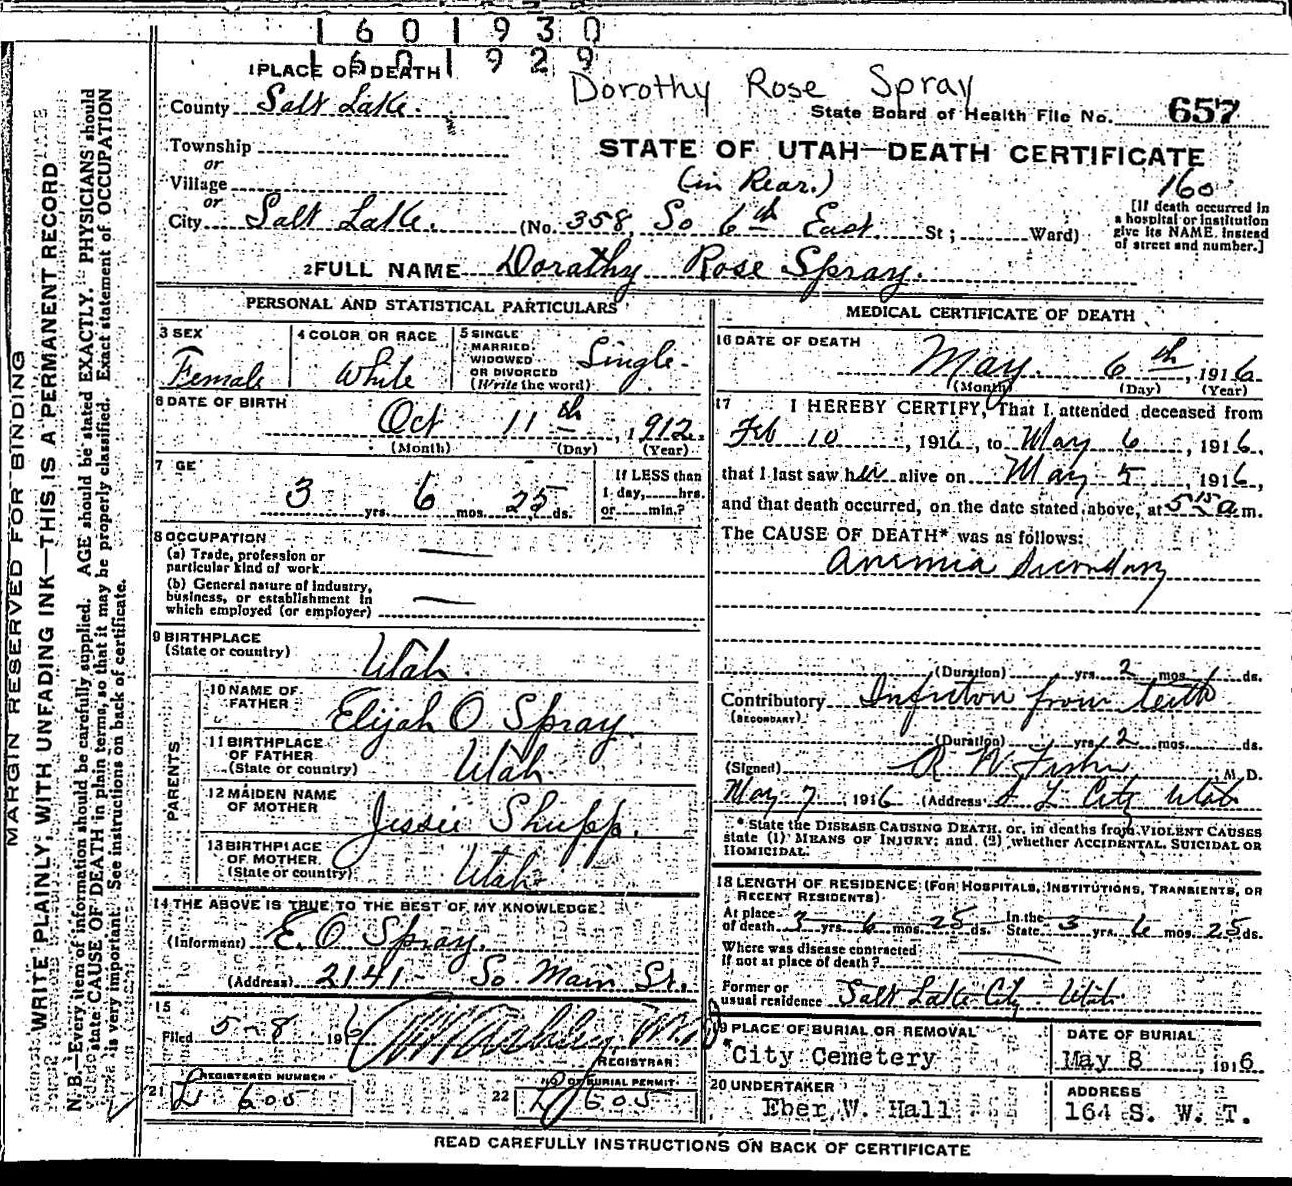 1601930
1601929
Dorothy Rose Spray
1 PLACE OF DEATH
County Salt Lake.
State Board of Health File No. 657
Township
or
STATE OF UTAH—DEATH CERTIFICATE
Village
(in Rear.)
160
or
City Salt Lake. (No. 358, So 6th East. St; Ward)
[If death occurred in
a hospital or institution
give its NAME, instead
of street and number.]
2 FULL NAME Dorathy Rose Spray.
PERSONAL AND STATISTICAL PARTICULARS
3 SEX
Female
4 COLOR OR RACE
White
5 SINGLE
MARRIED.
WIDOWED
OR DIVORCED
(Write the word)
Single.
6 DATE OF BIRTH
Oct 11th, 1912.
(Month) (Day) (Year)
7 GE
3 yrs. 6 mos. 25 ds.
If LESS than
1 day, hrs.
or min.?
8 OCCUPATION
(a) Trade, profession or
particular kind of work
(b) General nature of industry,
business, or establishment in
which employed (or employer)
9 BIRTHPLACE
(State or country)
Utah.
PARENTS
10 NAME OF
FATHER
Elijah O Spray.
11 BIRTHPLACE
OF FATHER
(State or country)
Utah
12 MAIDEN NAME
OF MOTHER
Jessie Shupp.
13 BIRTHPLACE
OF MOTHER
(State or country)
Utah
14 THE ABOVE IS TRUE TO THE BEST OF MY KNOWLEDGE.
(Informant) E. O Spray.
(Address) 2141 - So Main St.
15
Filed 5-8 1916
REGISTRAR
21 REGISTERED NUMBER
L 605
22 NO. OF BURIAL PERMIT
L 605
MEDICAL CERTIFICATE OF DEATH
16 DATE OF DEATH
May. 6th, 1916
(Month) (Day) (Year)
17 I HEREBY CERTIFY, That I attended deceased from
Feb 10, 1916, to May 6, 1916,
that I last saw her alive on May 5, 1916,
and that death occurred, on the date stated above, at 5 15 a.m.
The CAUSE OF DEATH* was as follows:
Anemia Secondary
(Duration) yrs. 2 mos. ds.
Contributory Infection from teeth
(SECONDARY)
(Duration) yrs. 2 mos. ds.
(Signed) R W Fisher M. D.
May 7, 1916 (Address) S L City Utah
* State the DISEASE CAUSING DEATH, or, in deaths from VIOLENT CAUSES
state (1) MEANS OF INJURY; and, (2) whether ACCIDENTAL, SUICIDAL OR
HOMICIDAL.
18 LENGTH OF RESIDENCE (FOR HOSPITALS, INSTITUTIONS, TRANSIENTS, OR
RECENT RESIDENTS).
At place of death 3 yrs. 6 mos. 25 ds. In the State 3 yrs. 6 mos. 25 ds.
Where was disease contracted
if not at place of death?
Former or
usual residence Salt Lake City Utah
19 PLACE OF BURIAL OR REMOVAL
City Cemetery
DATE OF BURIAL
May 8, 1916
20 UNDERTAKER
Eber W. Hall
ADDRESS
164 S. W. T.
READ CAREFULLY INSTRUCTIONS ON BACK OF CERTIFICATE
MARGIN RESERVED FOR BINDING
WRITE PLAINLY, WITH UNFADING INK—THIS IS A PERMANENT RECORD
N. B.—Every item of information should be carefully supplied. AGE should be stated EXACTLY. PHYSICIANS should
state CAUSE OF DEATH in plain terms, so that it may be properly classified. Exact statement of OCCUPATION
is very important. See instructions on back of certificate.